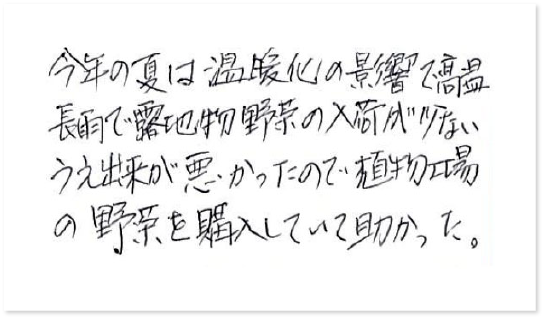 今年の夏は温暖化の影響で高温
長雨で露地物野菜の入荷が少ない
うえ出来が悪かったので植物工場
の野菜を購入していて助かった。